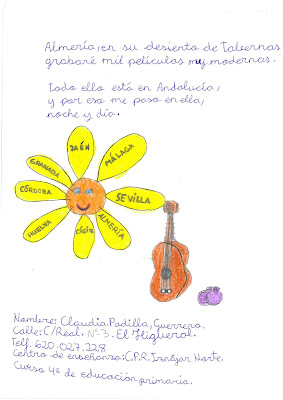 Almería, en su desierto de Tabernas
grabaré mil películas muy modernas.
Todo ello está en Andalucía,
y por eso me paso en ella,
noche y día.
JAÉN
MÁLAGA
GRANADA
CÓRDOBA
SEVILLA
HUELVA
CÁDIZ
ALMERÍA
Nombre: Claudia Padilla Guerrero.
Calle: C/Real Nº3. El Higueral.
Telf. 620.027.228
Centro de enseñanza: C.P.R. Iznájar Norte.
Curso 4º de educación primaria.